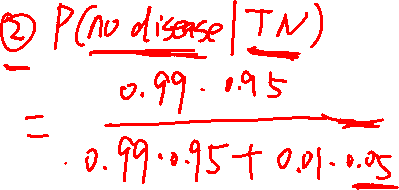 ② P(no disease | TN)
0.99 · .95
=
0.99 · 0.95 + 0.01 · 0.05